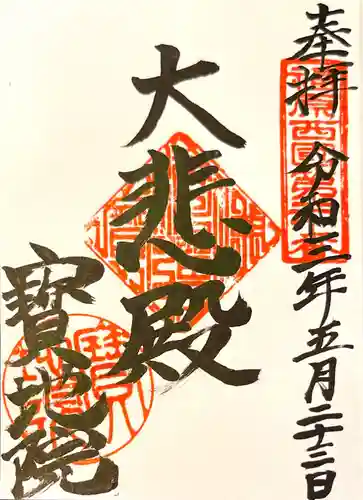 奉拝
令和三年五月二十三日
大悲殿
寶地院